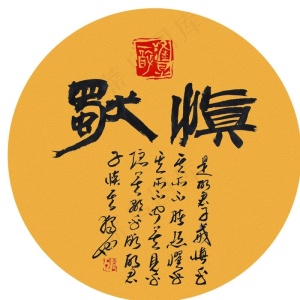 慎獨
是故君子戒慎乎
其所不睹恐懼乎
其所不聞莫見乎
隱莫顯乎微故君
子慎其獨也